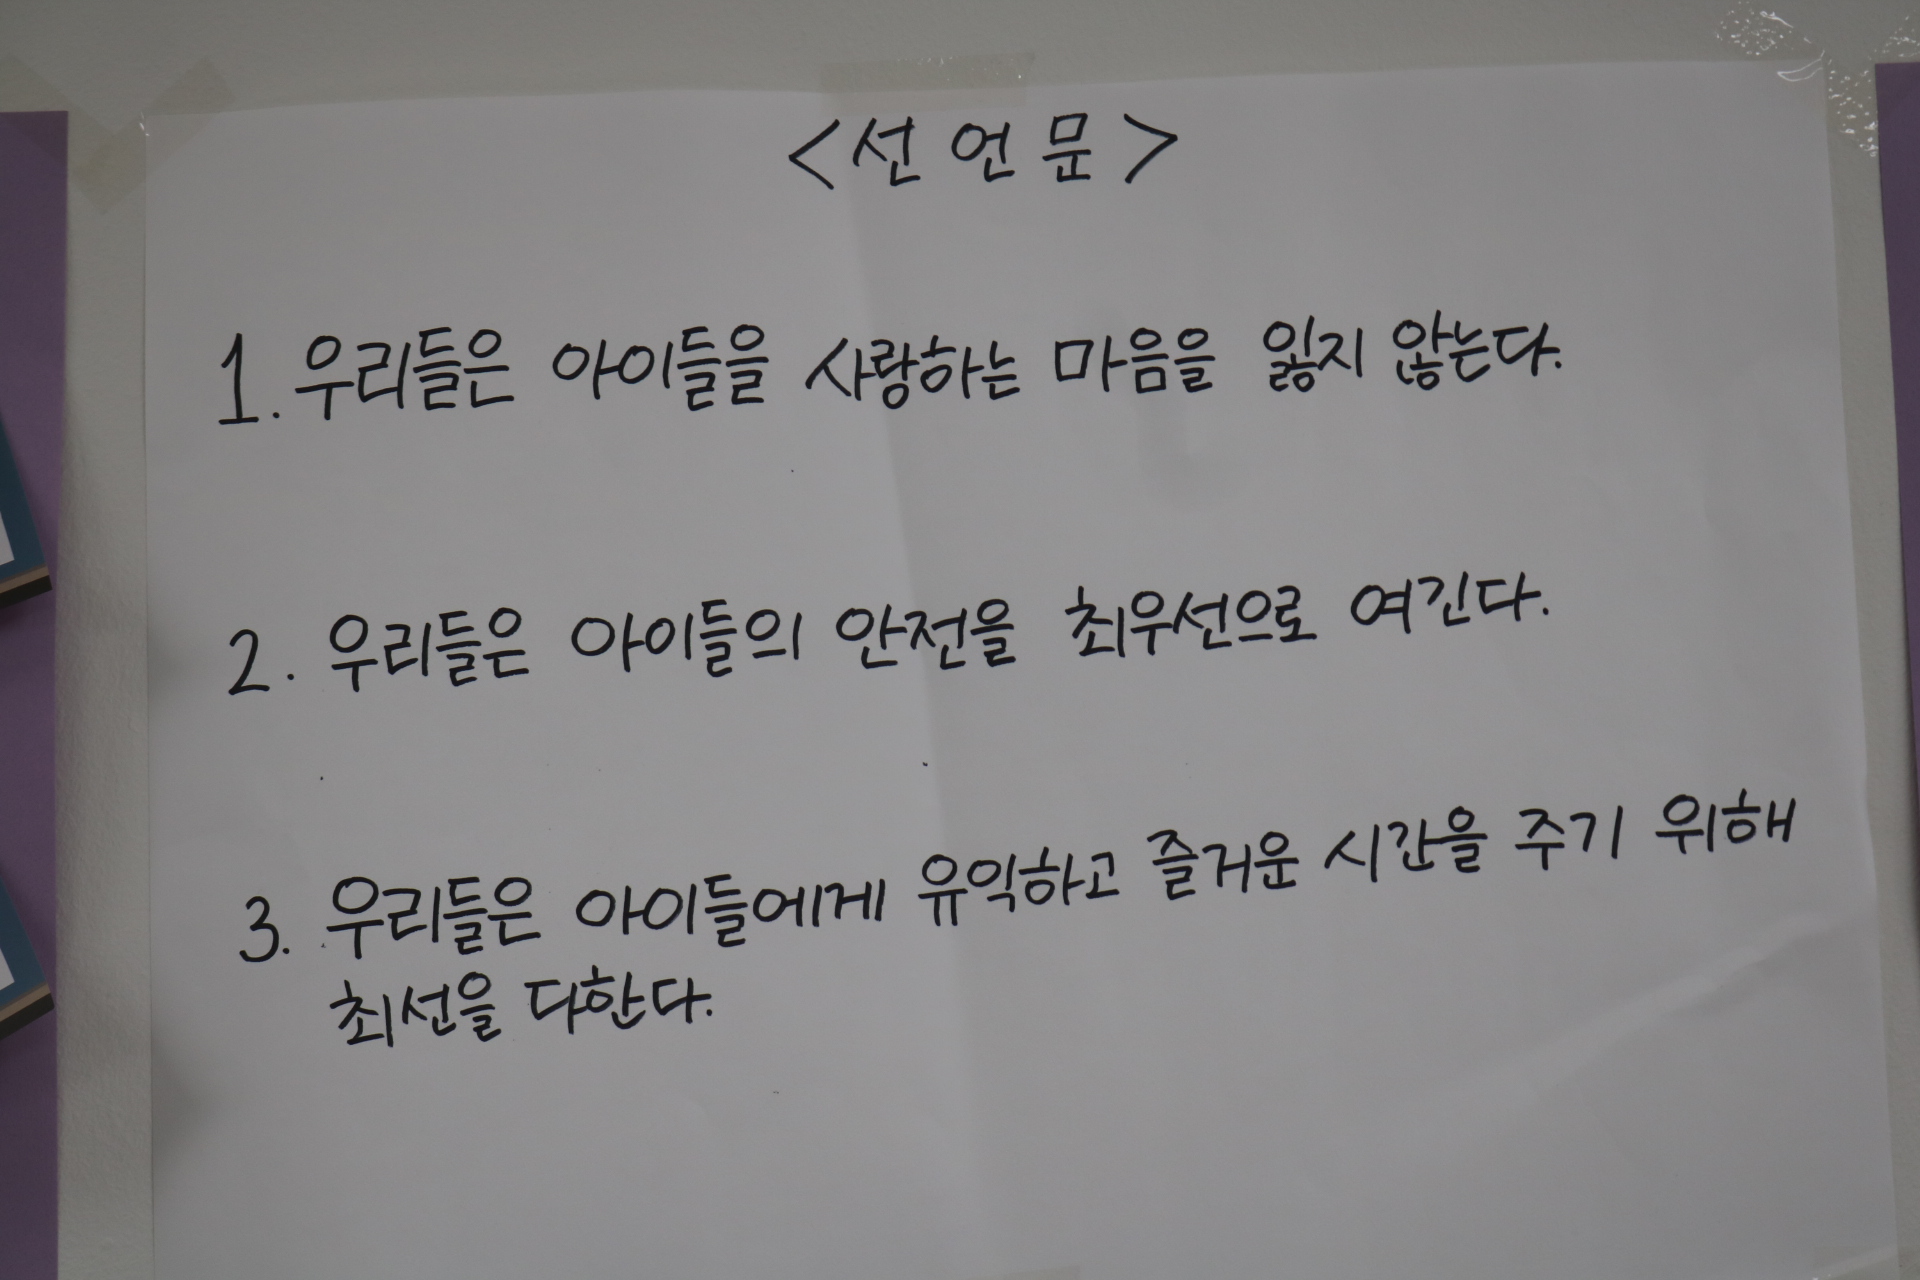 <선언문>
1. 우리들은 아이들을 사랑하는 마음을 잃지 않는다.
2. 우리들은 아이들의 안전을 최우선으로 여긴다.
3. 우리들은 아이들에게 유익하고 즐거운 시간을 주기 위해
최선을 다한다.